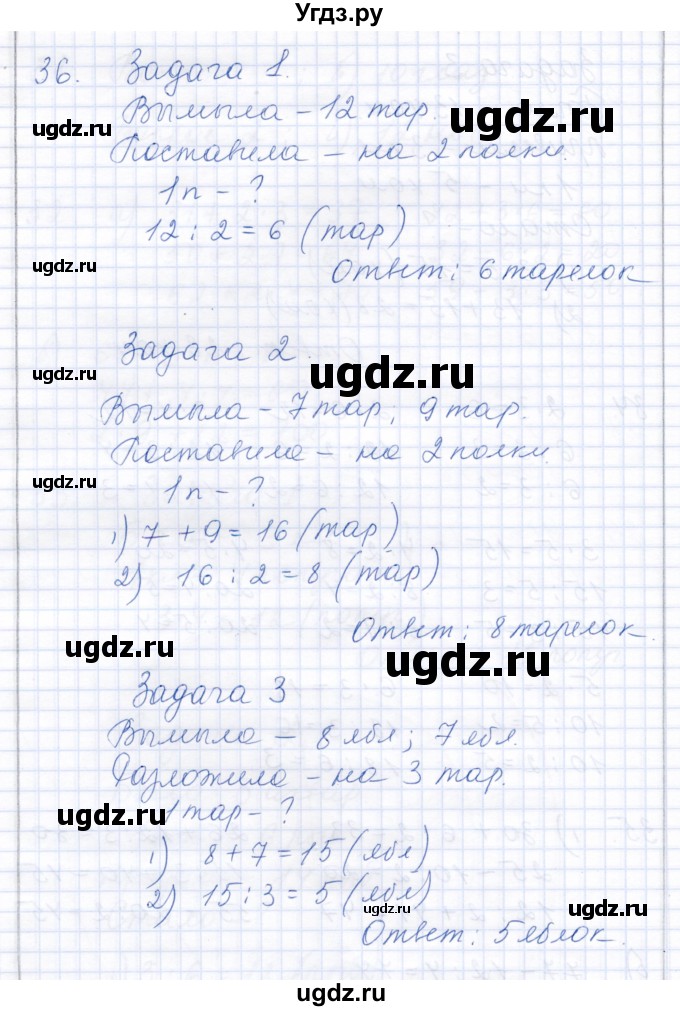 Угдз.ру
36. Задача 1.
Вымыла – 12 тар.
ugdz.ru
ugdz.ru
Поставила – на 2 полки.
1п – ?
12 : 2 = 6 (тар)
ugdz.ru
Ответ: 6 тарелок
Задача 2.
ugdz.ru
ugdz.ru
Вымыла – 7 тар; 9 тар.
Поставила – на 2 полки.
ugdz.ru
1п – ?
1) 7 + 9 = 16 (тар)
2) 16 : 2 = 8 (тар)
Ответ: 8 тарелок.
ugdz.ru
ugdz.ru
Задача 3
Вымыла – 8 ябл; 7 ябл.
Разложила – на 3 тар.
ugdz.ru
1 тар – ?
1) 8 + 7 = 15 (ябл)
2) 15 : 3 = 5 (ябл)
ugdz.ru
ugdz.ru
Ответ: 5 яблок.
ugdz.ru